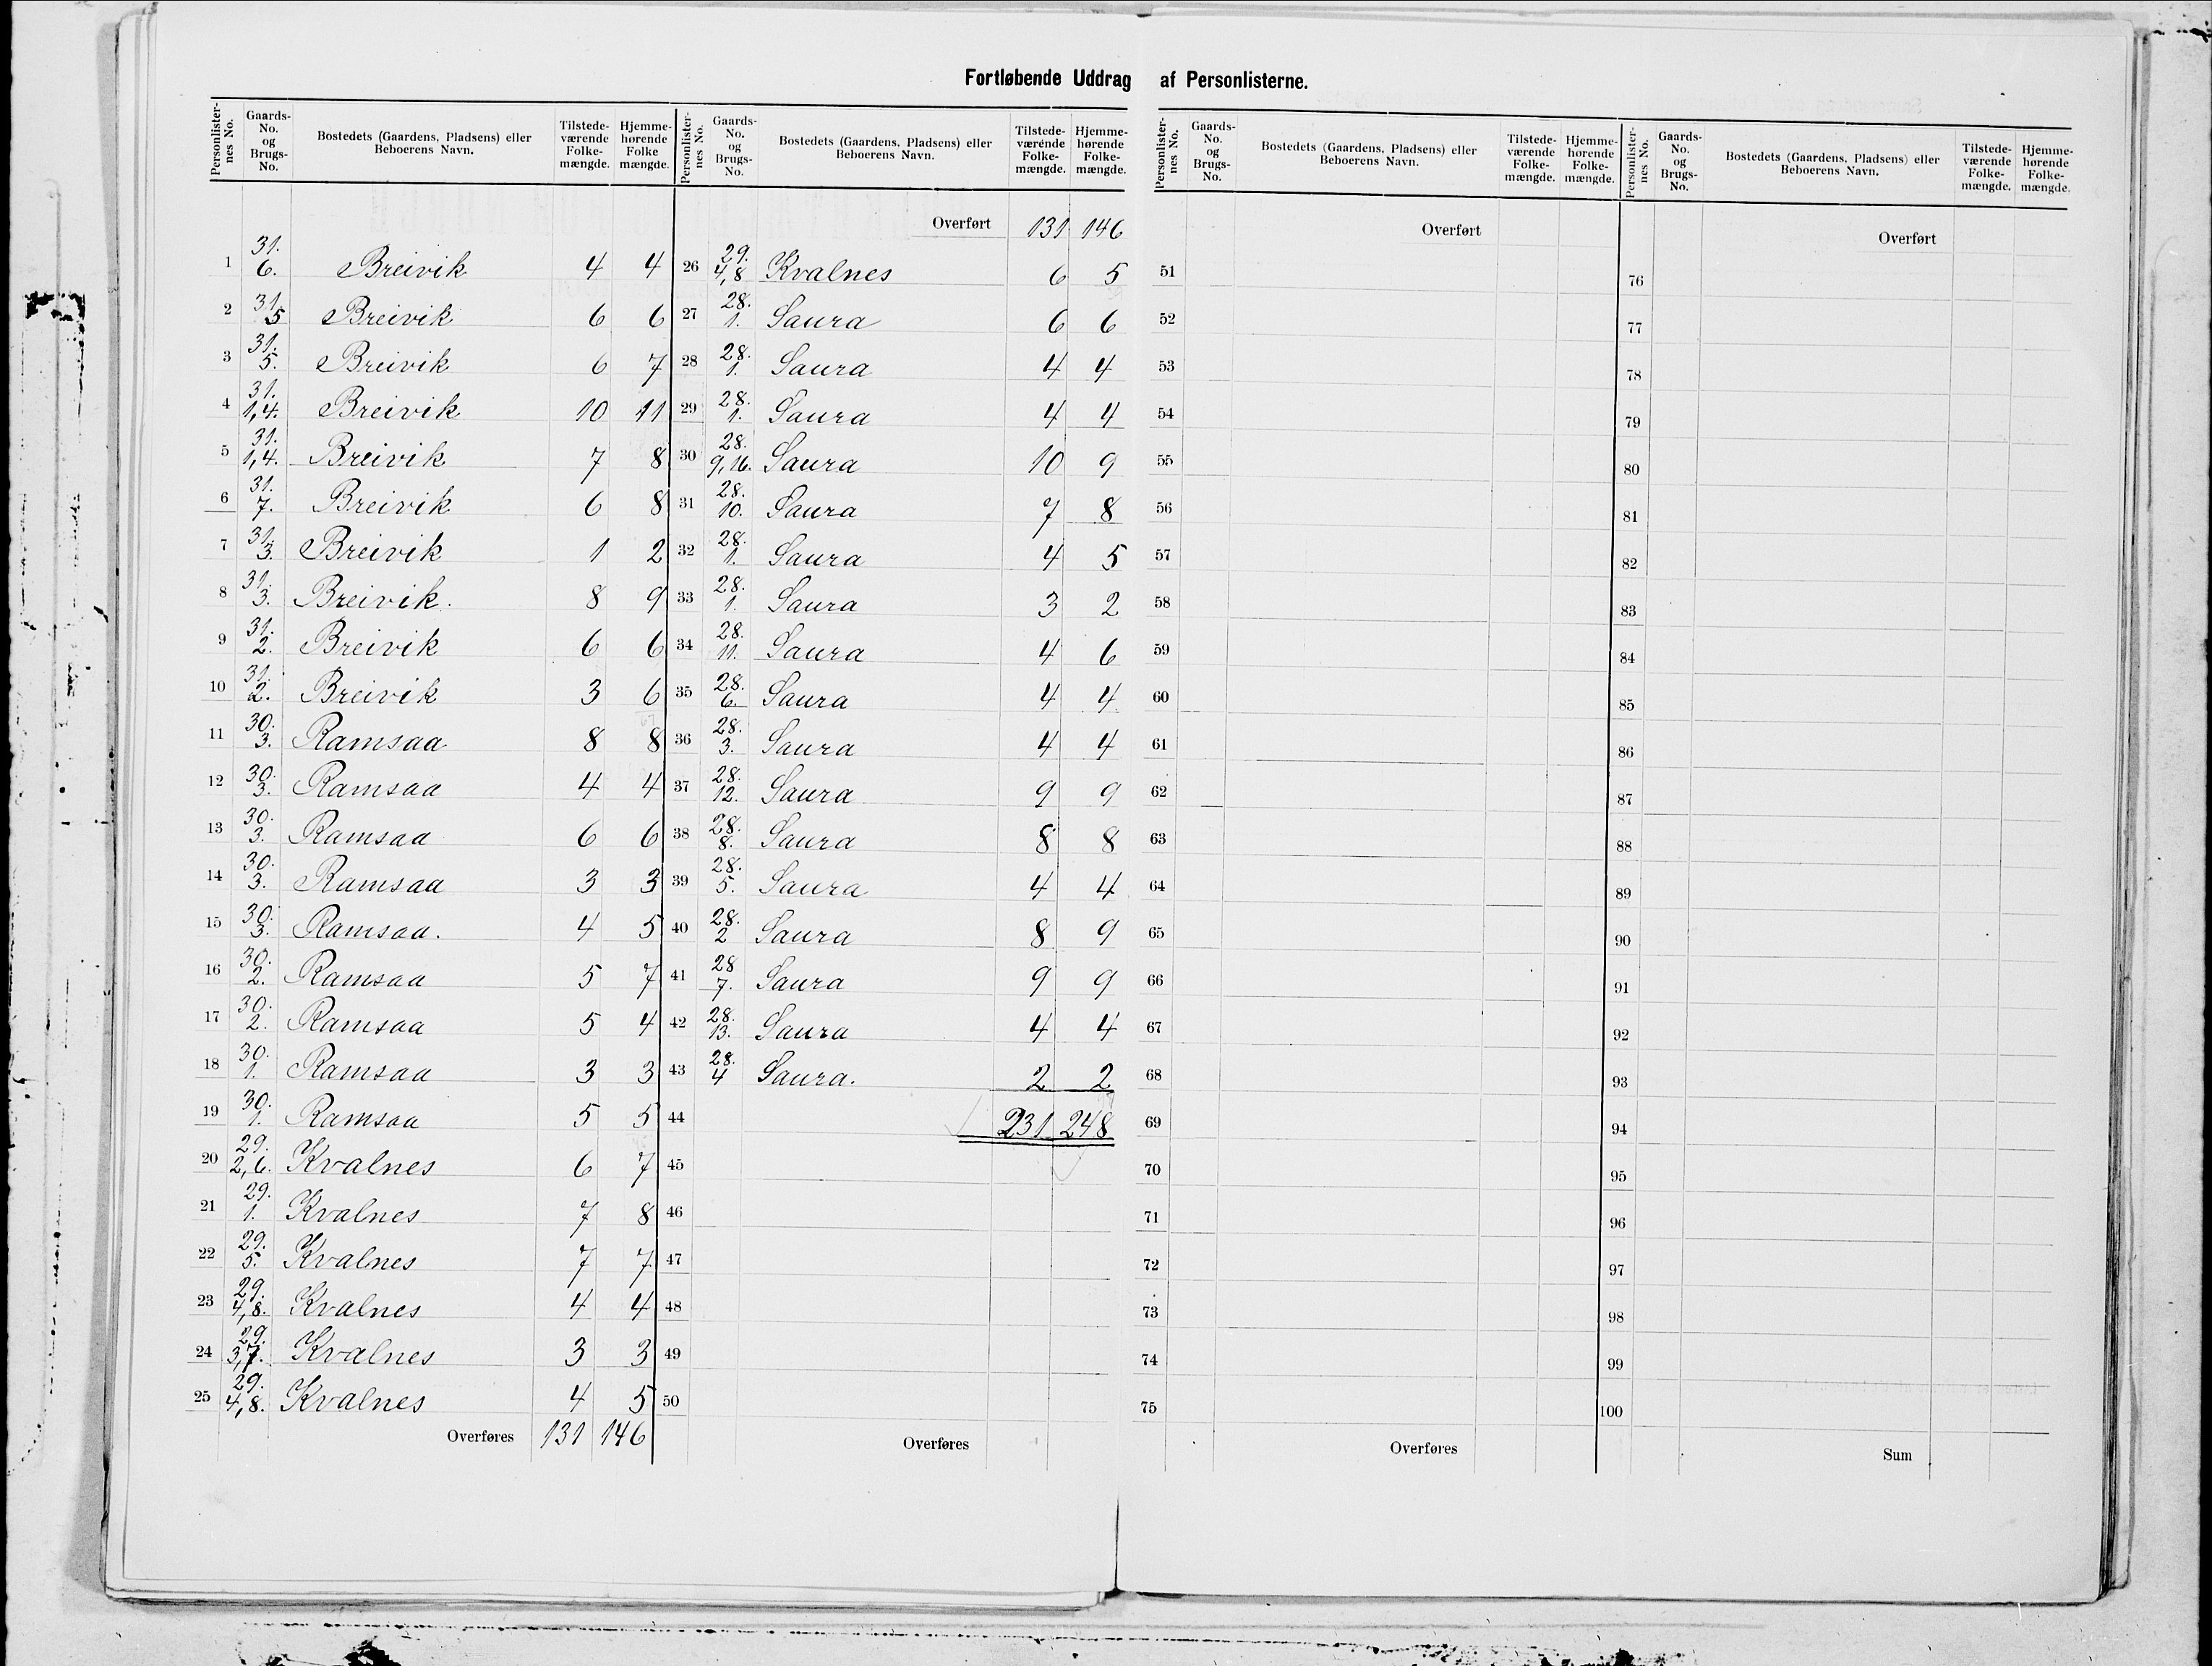 Fortløbende Uddrag af Personlisterne.
Personlisternes No. Gaards-No. og Brugs-No. Bostedets (Gaardens, Pladsens) eller Beboerens Navn. Tilstedeværende Folkemængde. Hjemmehørende Folkemængde.
1 31. 6. Breivik 4 4
2 31. 5 Breivik 6 6
3 31. 5. Breivik 6 7
4 31. 1,4. Breivik 10 11
5 31. 1,4. Breivik 7 8
6 31. 7. Breivik 6 8
7 31. 3. Breivik 1 2
8 31. 3. Breivik. 8 9
9 31. 2. Breivik 6 6
10 31. 2. Breivik 3 6
11 30. 3. Ramsaa 8 8
12 30. 3. Ramsaa 4 4
13 30. 3. Ramsaa 6 6
14 30. 3. Ramsaa 3 3
15 30. 3. Ramsaa. 4 5
16 30. 2. Ramsaa 5 7
17 30. 2. Ramsaa 5 4
18 30. 1. Ramsaa 3 3
19 30. 1. Ramsaa 5 5
20 29. 2,6. Kvalnes 6 7
21 29. 1. Kvalnes 7 8
22 29. 5. Kvalnes 7 7
23 29. 4,8. Kvalnes 4 4
24 29. 3,7. Kvalnes 3 3
25 29. 4,8. Kvalnes 4 5
Overføres 131 146
Personlisternes No. Gaards-No. og Brugs-No. Bostedets (Gaardens, Pladsens) eller Beboerens Navn. Tilstedeværende Folkemængde. Hjemmehørende Folkemængde.
Overført 131 146
26 29. 4,8 Kvalnes 6 5
27 28. 1. Saura 6 6
28 28. 1. Saura 4 4
29 28. 1. Saura 4 4
30 28. 9,16. Saura 10 9
31 28. 10. Saura 7 8
32 28. 1. Saura 4 5
33 28. 1. Saura 3 2
34 28. 11. Saura 4 6
35 28. 6. Saura 4 4
36 28. 3. Saura 4 4
37 28. 12. Saura 9 9
38 28. 8. Saura 8 8
39 28. 5. Saura 4 4
40 28. 2 Saura 8 9
41 28 7. Saura 9 9
42 28. 13. Saura 4 4
43 28. 4 Saura. 2 2
44 231 248
45
46
47
48
49
50
Overføres
Personlisternes No. Gaards-No. og Brugs-No. Bostedets (Gaardens, Pladsens) eller Beboerens Navn. Tilstedeværende Folkemængde. Hjemmehørende Folkemængde.
Overført
51
52
53
54
55
56
57
58
59
60
61
62
63
64
65
66
67
68
69
70
71
72
73
74
75
Overføres
Personlisternes No. Gaards-No. og Brugs-No. Bostedets (Gaardens, Pladsens) eller Beboerens Navn. Tilstedeværende Folkemængde. Hjemmehørende Folkemængde.
Overført
76
77
78
79
80
81
82
83
84
85
86
87
88
89
90
91
92
93
94
95
96
97
98
99
100
Sum